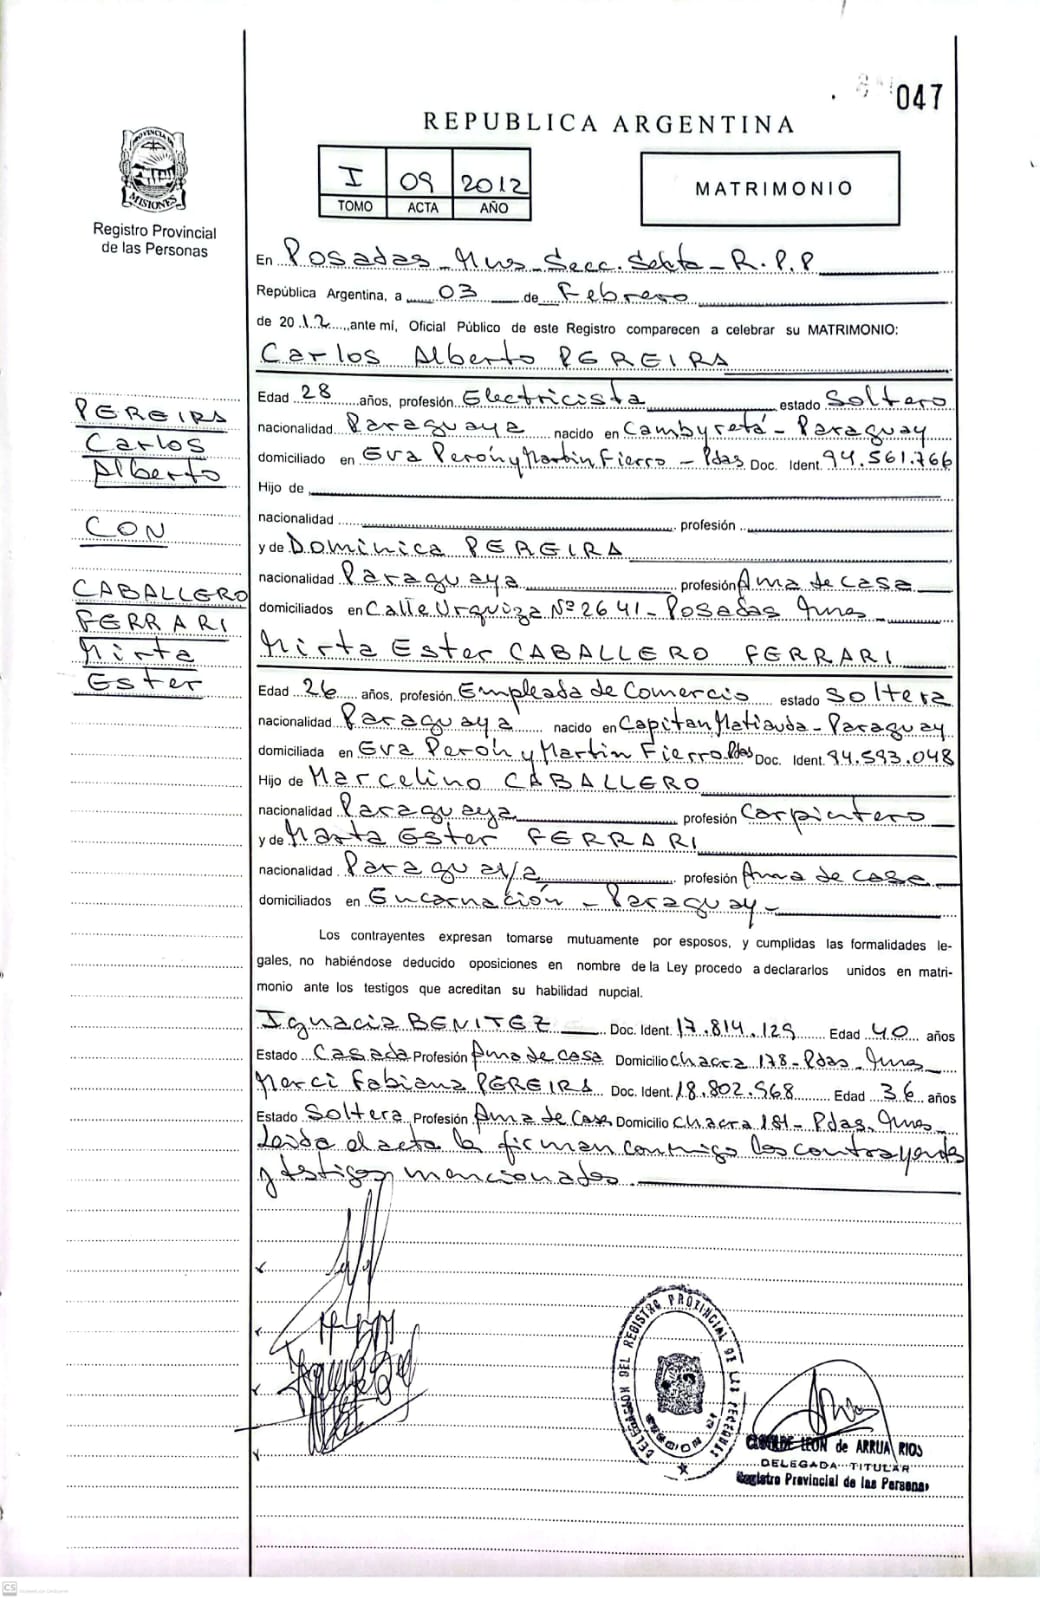 047
REPUBLICA ARGENTINA
PROVINCIA DE
MISIONES
Registro Provincial
de las Personas
I 09 2012
TOMO ACTA AÑO
MATRIMONIO
En Posadas - Mnes - Secc. Sexta - R.P.P
República Argentina, a 03 de Febrero
de 2012, ante mí, Oficial Público de este Registro comparecen a celebrar su MATRIMONIO:
Carlos Alberto PEREIRA
PEREIRA
Carlos
Alberto
CON
CABALLERO
FERRARI
Mirta
Ester
Edad 28 años, profesión Electricista estado Soltero
nacionalidad Paraguaya nacido en Cambyretá - Paraguay
domiciliado en Eva Perón y Martin Fierro - Pdas Doc. Ident. 94.561.766
Hijo de
nacionalidad profesión
y de Dominica PEREIRA
nacionalidad Paraguaya profesión Ama de casa
domiciliados en Calle Urquiza Nº 2641 - Posadas Mnes -
Mirta Ester CABALLERO FERRARI
Edad 26 años, profesión Empleada de Comercio estado Soltera
nacionalidad Paraguaya nacido en Capitan Matiauda - Paraguay
domiciliada en Eva Perón y Martin Fierro Pdas Doc. Ident. 94.593.048
Hijo de Marcelino CABALLERO
nacionalidad Paraguaya profesión Carpintero
y de Marta Ester FERRARI
nacionalidad Paraguaya profesión Ama de casa
domiciliados en Encarnación - Paraguay -
Los contrayentes expresan tomarse mutuamente por esposos, y cumplidas las formalidades le-
gales, no habiéndose deducido oposiciones en nombre de la Ley procedo a declararlos unidos en matri-
monio ante los testigos que acreditan su habilidad nupcial.
Ignacia BENITEZ Doc. Ident. 17.814.129 Edad 40 años
Estado Casada Profesión Ama de casa Domicilio chacra 178 - Pdas - Mnes
Merci Fabiana PEREIRA Doc. Ident. 18.802.568 Edad 36 años
Estado Soltera Profesión Ama de Casa Domicilio Chacra 181 - Pdas. Mnes -
Leída el acta la firman conmigo los contrayentes
y testigos mencionados.
DELEGACION DEL REGISTRO PROVINCIAL DE LAS PERSONAS
de ARRUA RIOS
DELEGADA TITULAR
Registro Provincial de las Personas
CS